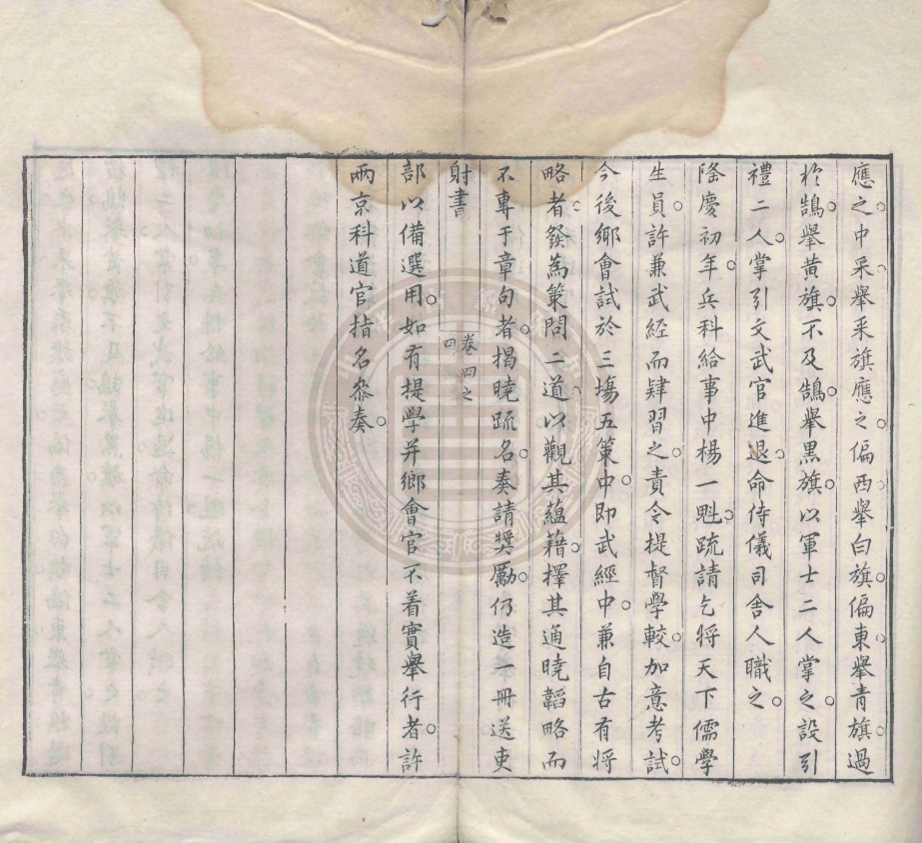 應之中采舉采旗應之偏西舉白旗偏東舉青旗過
於鵠舉黃旗不及鵠舉黑旗以軍士二人掌之設引
禮二人掌引文武官進退命侍儀司舍人職之
隆慶初年兵科給事中楊一魁疏請乞將天下儒學
生員許兼武經而肄習之責令提督學較加意考試
今後鄉會試於三塲五策中即武經中兼自古有將
略者發為策問二道以觀其蘊藉擇其通曉韜略而
不專于章句者揭曉疏名奏請獎勵仍造一冊送吏
射書
卷四之
四
部以備選用如有提學并鄉會官不着實舉行者許
兩京科道官指名叅奏